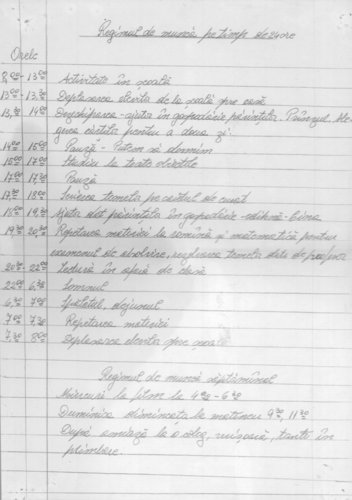 Regimul de muncă pe timp de 24 ore
Orele
8,00 - 13,00 Activitate în școală
13,00 - 13,30 Deplasarea elevilor de la școală spre casă
13,30 14,00 ajuta în gospodărie părinților. Prînzul. Ale
gerea cărților pentru a doua zi.
14,00 15,00 Pauză - Putem să dormim
15,00 17,00 Studiu la toate obiectele
17,00 17,30 Pauză
17,30 18,00 Scierea temelor pe caietul de curat
18,00 19,30 Ajuta dat părinților în gospodărie - odihnă - Cina
19,30 20,30 Repetarea materiei la română și matematică pentru
examenul de absolvire, rezolvarea temelor date de profesor
20,30 - 22,00 Lectură în afară de clasă
22,00 6,30 Somnul
6,30 7,00 Spălatul, dejunul
7,00 7,30 Repetarea materiei
7,30 8,00 Deplasarea elevilor spre școală
Regimul de muncă săptămînal
Miercuri la film la 4,00 - 6,00
Duminica dimineața la matineu 9,30, 11,30
După amiază la o colegă, mătușă, tanti în
plimbare.